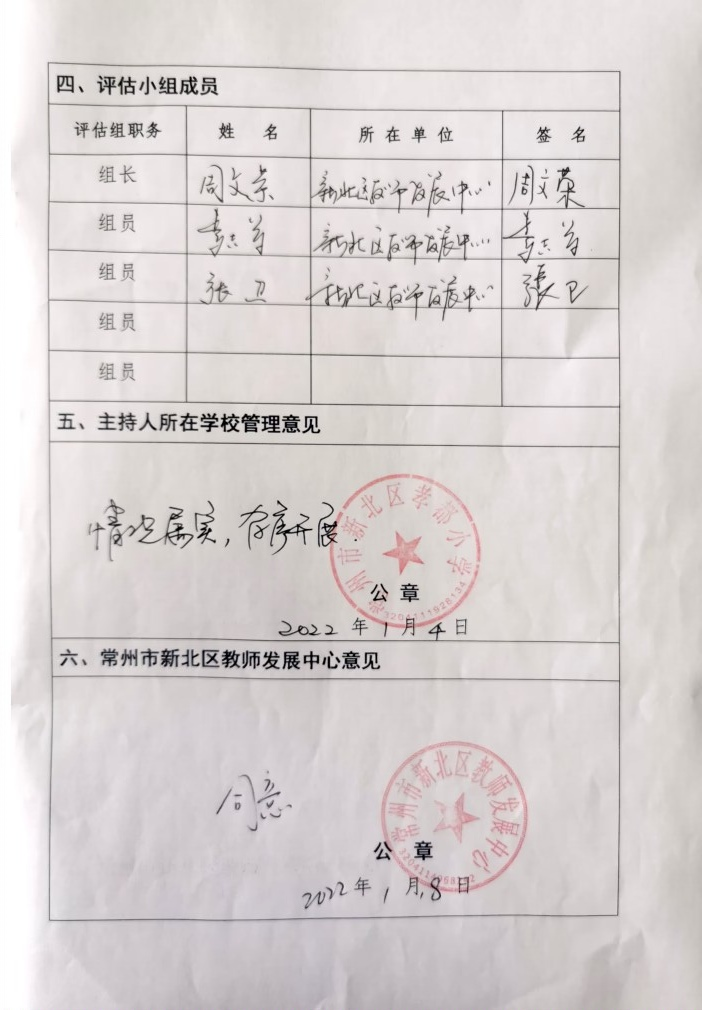 四、评估小组成员
评估组职务 姓 名 所 在 单 位 签 名
组长 周文荣 新北区教师发展中心 周文荣
组员 新北区教师发展中心
组员 张卫 新北区教师发展中心 張卫
组员
组员
五、主持人所在学校管理意见
情况属实，有序开展.
常州市新北区孝都小学
公 章
3204111928134
2022 年 1 月 4 日
六、常州市新北区教师发展中心意见
同意
常州市新北区教师发展中心
公 章
2022 年 1 月 8 日